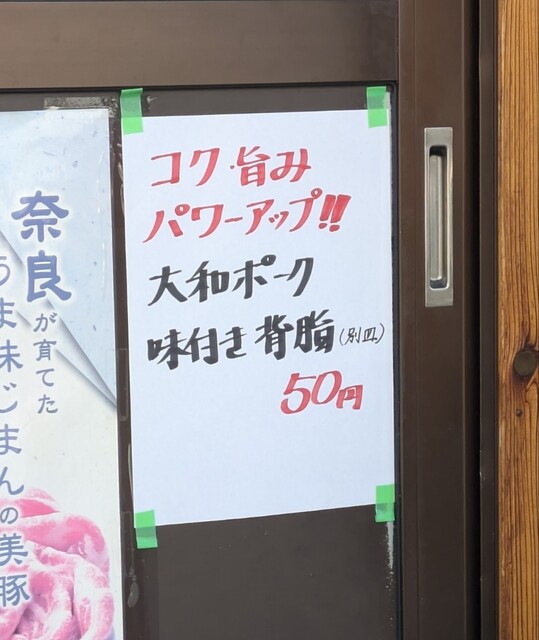 コク・旨み
パワーアップ!!
大和ポーク
味付き背脂(別皿)
50円
奈良が育てた
うま味じまんの美豚